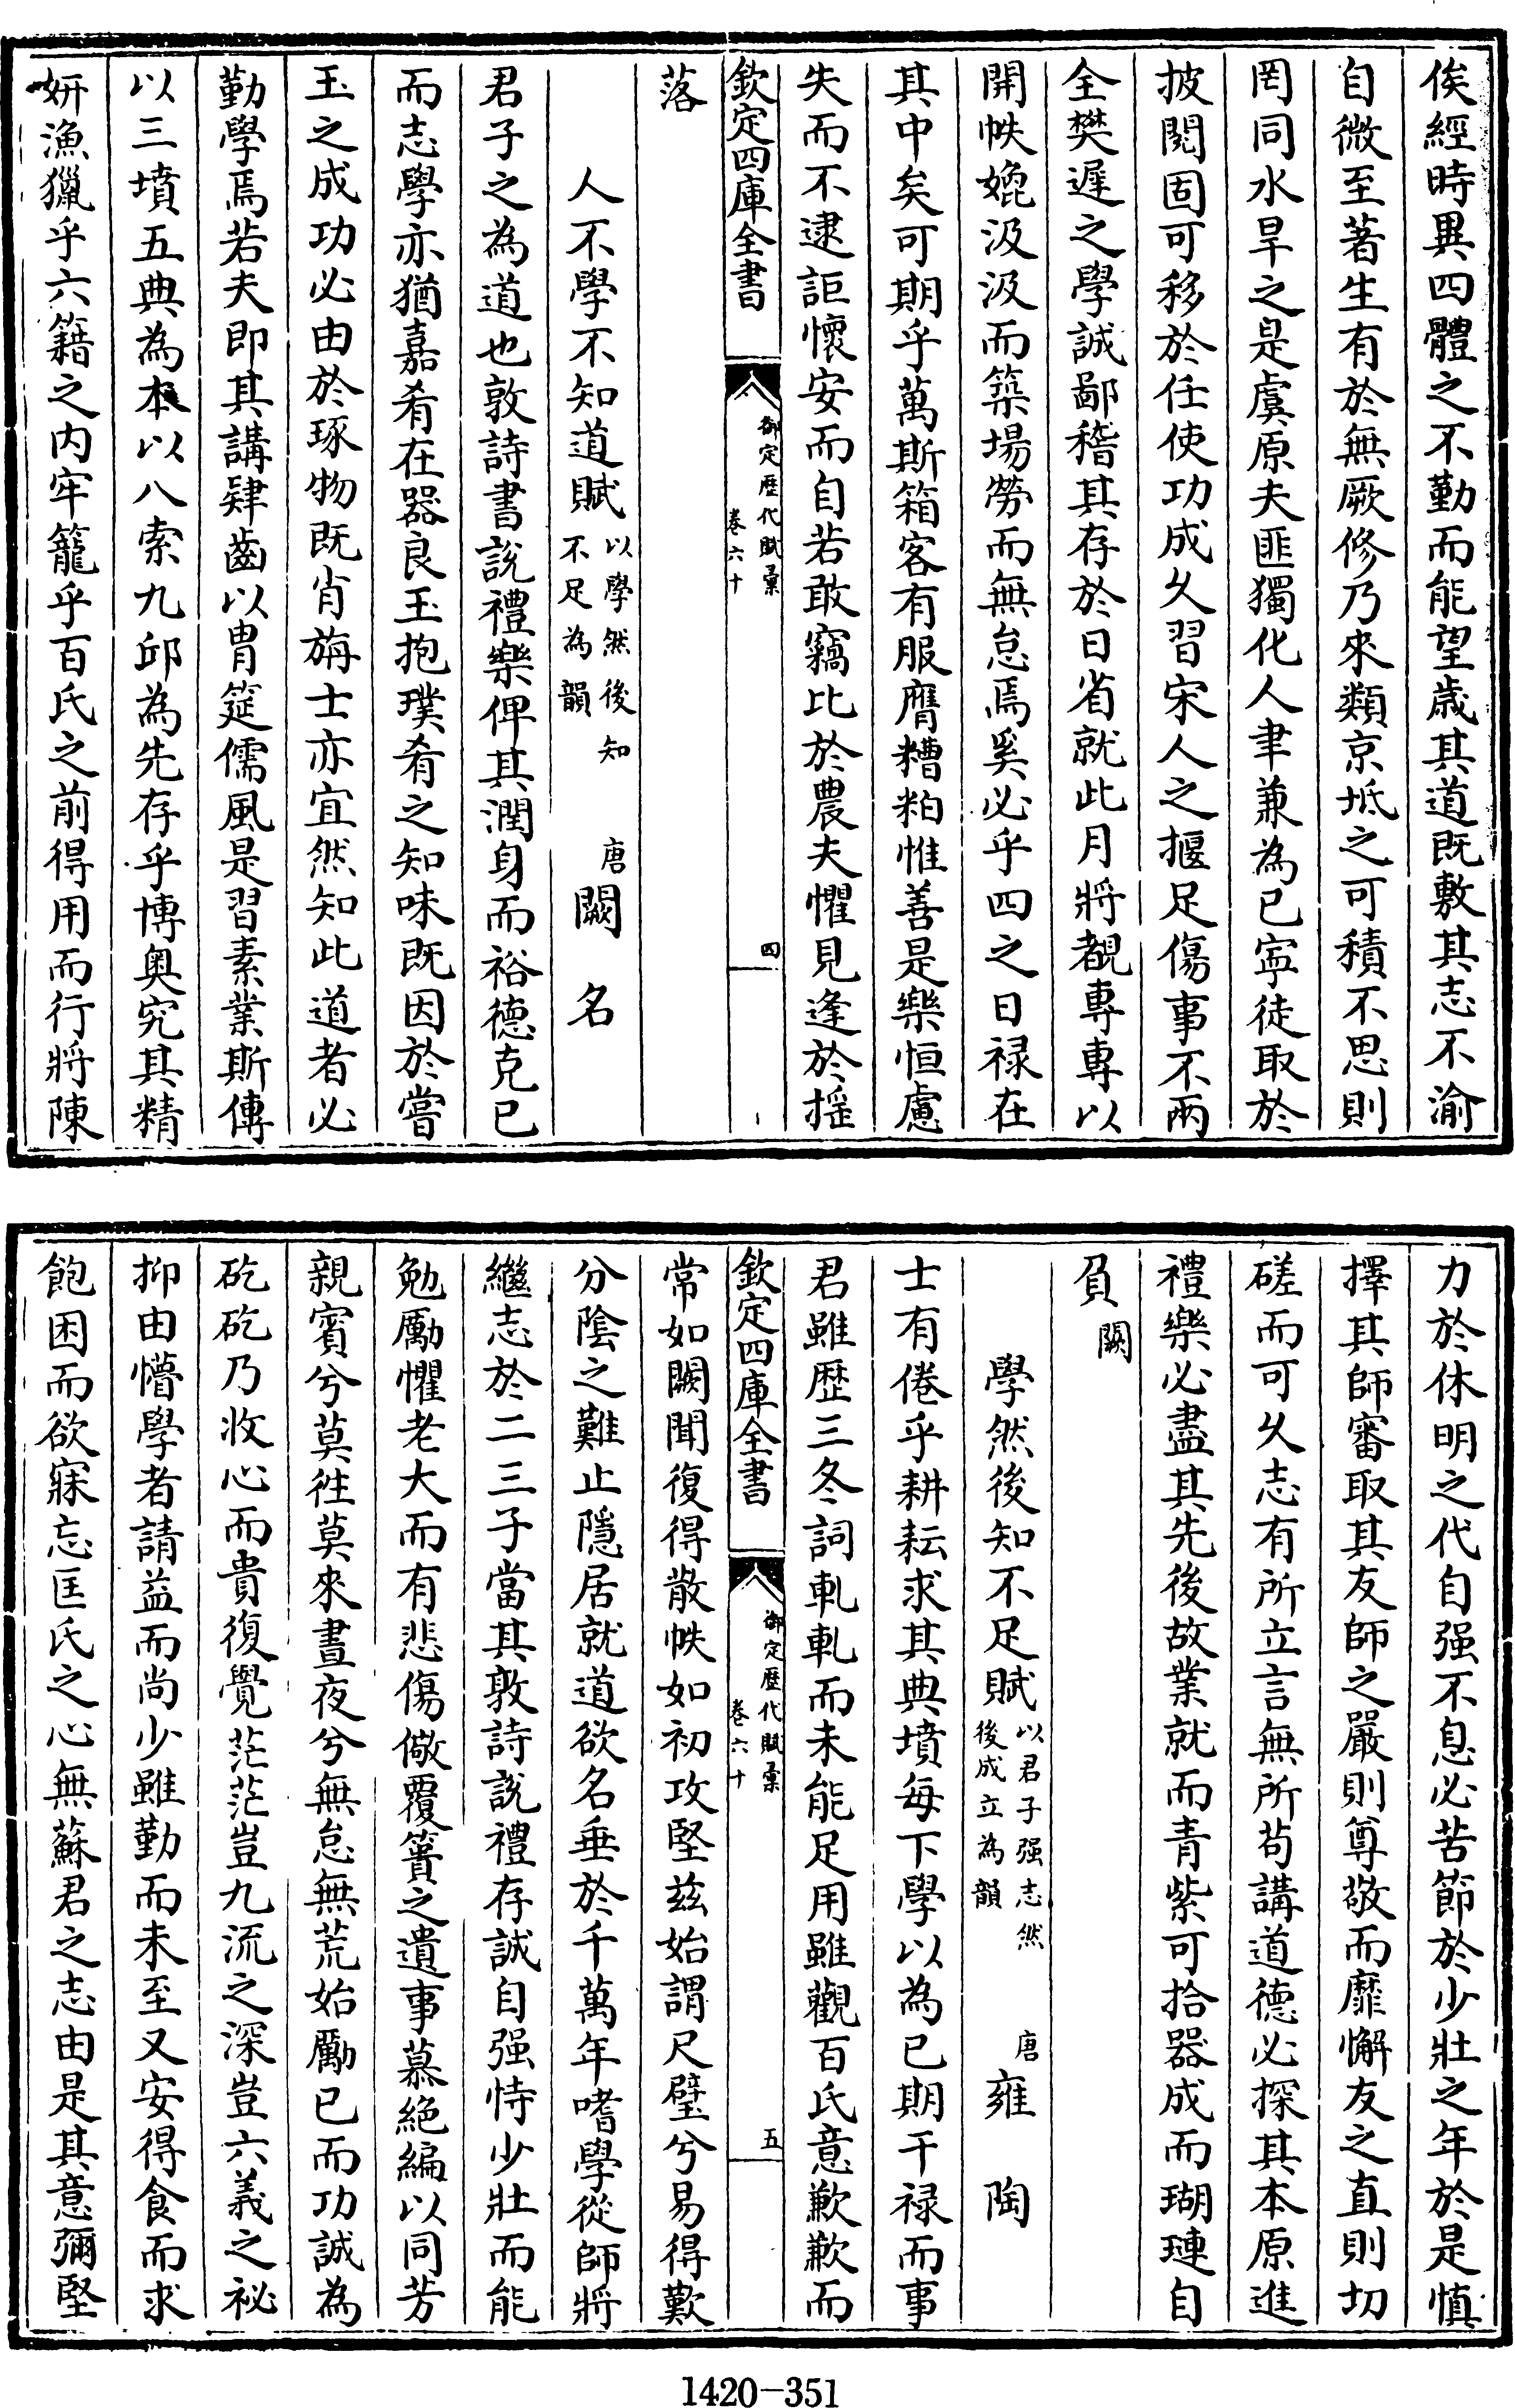 俟經時異四體之不勤而能望歳其道既敷其志不渝
自微至著生有於無厥修乃來類京坻之可積不思則
罔同水旱之是虞原夫匪獨化人聿兼為已寧徒取於
披閱固可移於任使功成久習宋人之揠足傷事不兩
全樊遲之學誠鄙稽其存於日省就此月將覩專專以
開帙媲汲汲而築場勞而無怠焉奚必乎四之日禄在
其中矣可期乎萬斯箱客有服膺糟粕惟善是樂恒慮
失而不逮詎懷安而自若敢竊比於農夫懼見逢於揺
欽定四庫全書
御定歴代賦彙
卷六十
四
落
人不學不知道賦
以學然後知
不足為韻
唐闕名
君子之為道也敦詩書說禮樂俾其潤身而裕德克已
而志學亦猶嘉肴在器良玉抱璞肴之知味既因於嘗
玉之成功必由於琢物既肖旃士亦宜然知此道者必
勤學焉若夫即其講肄齒以胄筵儒風是習素業斯傳
以三墳五典為本以八索九邱為先存乎博奥究其精
妍漁獵乎六籍之内牢籠乎百氏之前得用而行將陳
力於休明之代自强不息必苦節於少壯之年於是慎
擇其師審取其友師之嚴則尊敬而靡懈友之直則切
磋而可久志有所立言無所茍講道德必探其本原進
禮樂必盡其先後故業就而青紫可拾器成而瑚璉自
負闕
學然後知不足賦
以君子强志然
後成立為韻
唐雍陶
士有倦乎耕耘求其典墳每下學以為已期干禄而事
君雖歴三冬詞軋軋而未能足用雖觀百氏意歉歉而
欽定四庫全書
御定歴代賦彙
卷六十
五
常如闕聞復得散帙如初攻堅兹始謂尺璧兮易得歎
分陰之難止隱居就道欲名垂於千萬年嗜學從師將
繼志於二三子當其敦詩説禮存誠自强恃少壯而能
勉勵懼老大而有悲傷儆覆簣之遺事慕絶編以同芳
親賓兮莫徃莫來晝夜兮無怠無荒始勵已而功誠為
矻矻乃收心而貴復覺茫茫豈九流之深豈六義之祕
抑由懵學者請益而尚少雖勤而未至又安得食而求
飽困而欲寐忘匡氏之心無蘇君之志由是其意彌堅
1420-351